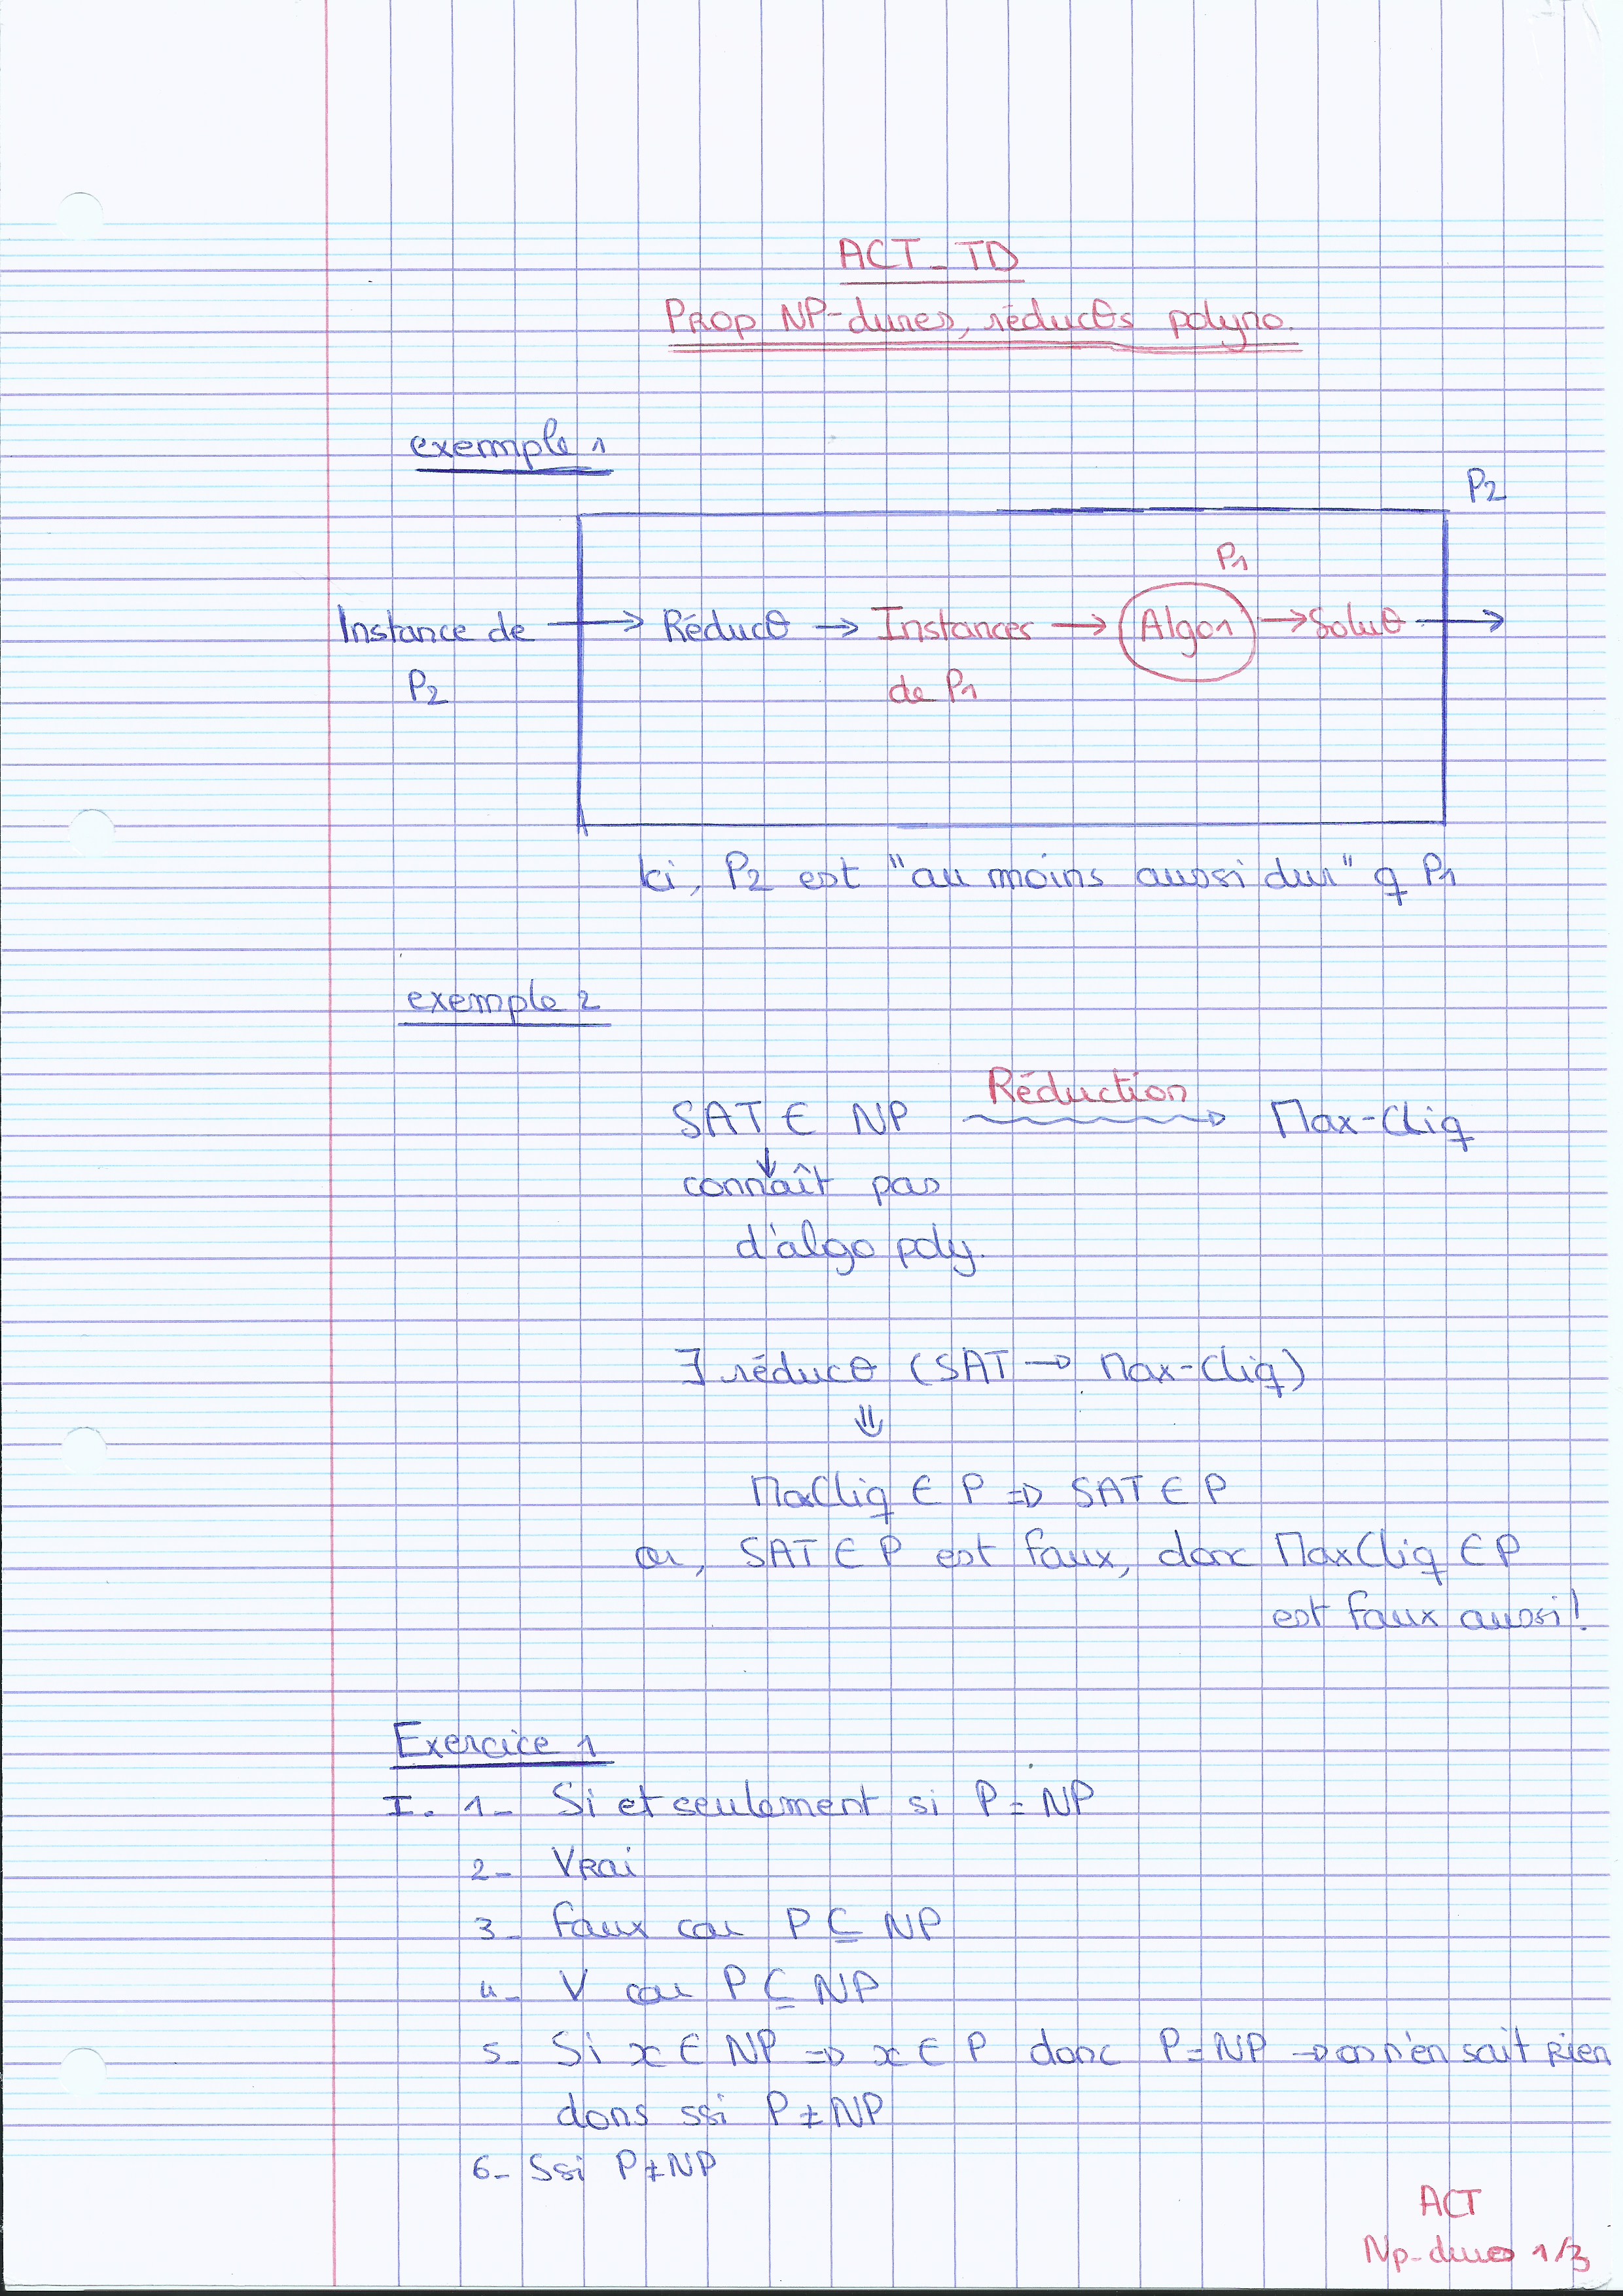 ACT_TD
Prop NP-dures, réducθs polyno.
exemple 1
P2
P1
Instance de → Réducθ → Instances → Algo1 → Soluθ →
P2 de P1
Ici, P2 est "au moins aussi dur" q P1
exemple 2
Réduction
SAT ∈ NP → Max-Cliq
↓
connaît pas
d'algo poly.
∃ réducθ (SAT → Max-Cliq)
⇓
MaxCliq ∈ P ⇒ SAT ∈ P
or, SAT ∈ P est faux, donc MaxCliq ∈ P
est faux aussi!
Exercice 1
I. 1_ Si et seulement si P = NP
2_ Vrai
3_ Faux car P ⊆ NP
4_ V car P ⊆ NP
5_ Si x ∈ NP ⇒ x ∈ P donc P = NP → on n'en sait rien
dons ssi P ≠ NP
6_ Ssi P ≠ NP
ACT
Np-dures 1/3